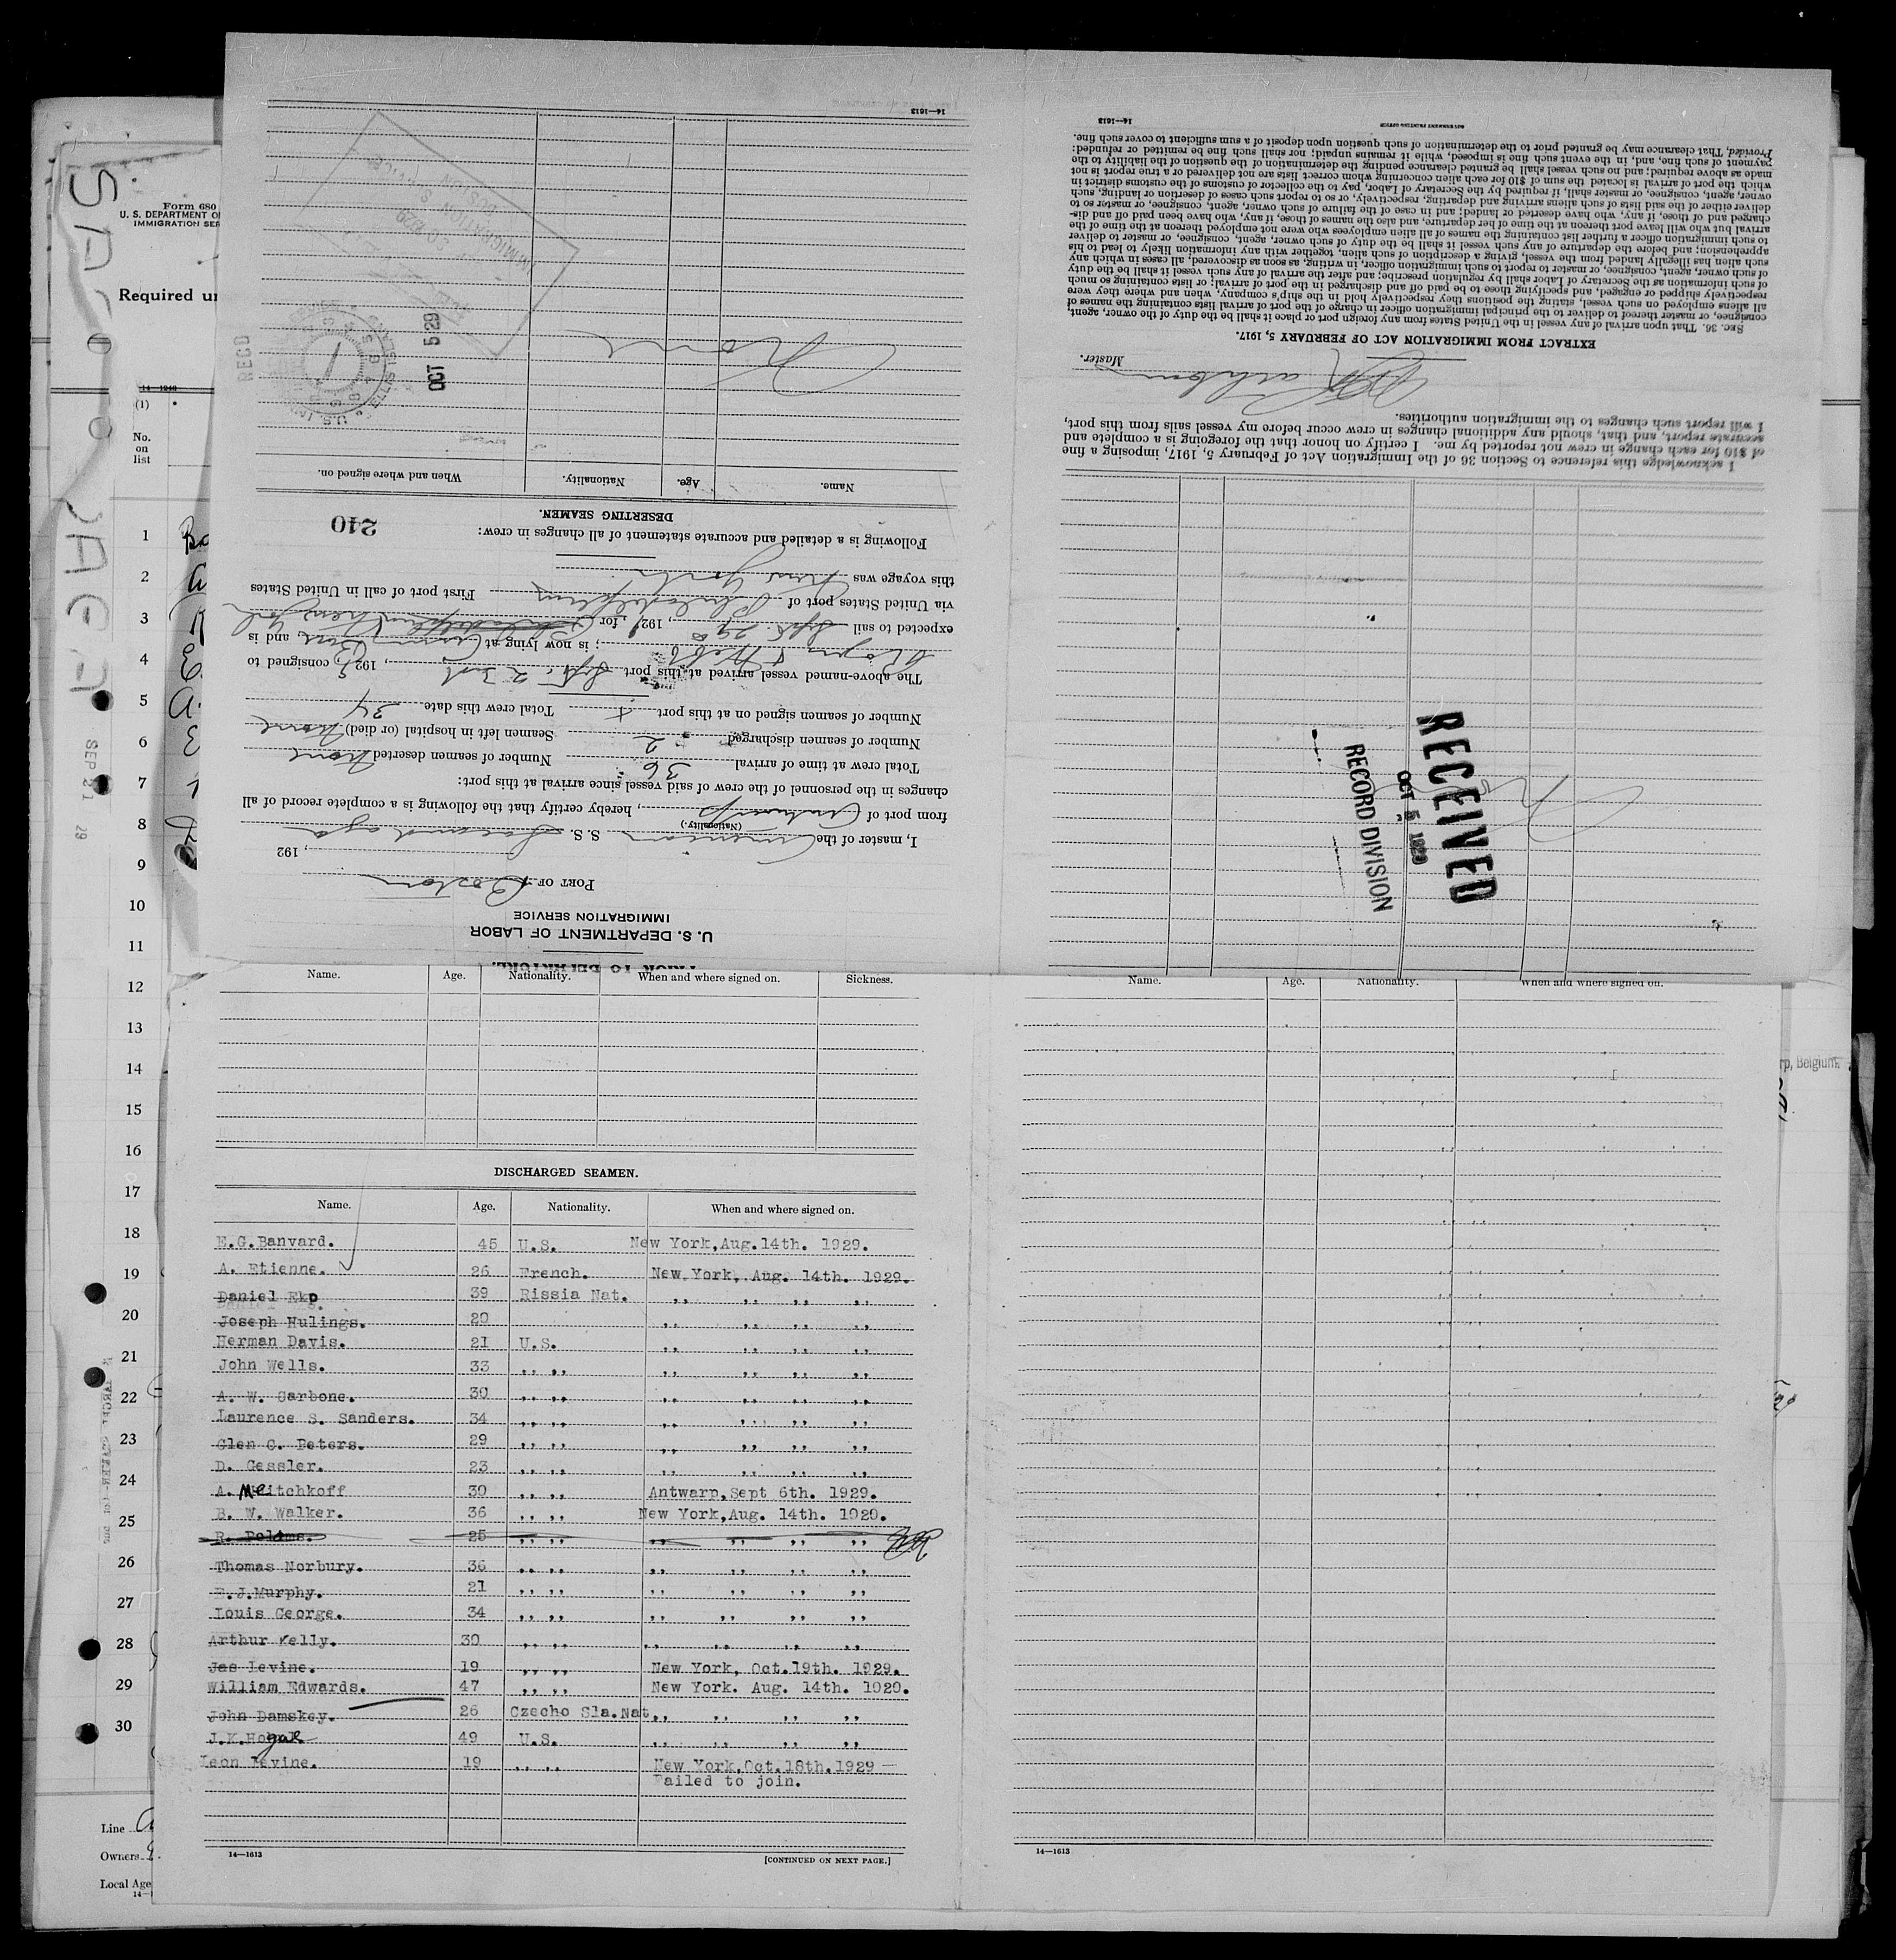 Form 680
U. S. DEPARTMENT OF
IMMIGRATION SER
Required un
14—1240
(1)
No.
on
list
SEP 21 29
1
2
3
4
5
6
7
8
9
10
11
12
13
14
15
16
17
18
19
20
21
22
23
24
25
26
27
28
29
30
Line
Owners
Local Age
rp, Belgium.
PRIOR TO DEPARTURE.
U. S. DEPARTMENT OF LABOR
IMMIGRATION SERVICE
PORT OF Boston
, 192
I, master of the American S. S. Sacandaga
(Nationality.)
from port of Antwerp, hereby certify that the following is a complete record of all
changes in the personnel of the crew of said vessel since arrival at this port:
Total crew at time of arrival 36 Number of seamen deserted None
Number of seamen discharged 2 Seamen left in hospital (or died) None
Number of seamen signed on at this port Total crew this date 34
The above-named vessel arrived at this port Sept. 23rd, 192 consigned to
Rogers & Webb; is now lying at Army Base, and is
expected to sail Sept. 29, 192, for Philadelphia New York
via United States port of Philadelphia First port of call in United States
this voyage was New York
Following is a detailed and accurate statement of all changes in crew:
240
DESERTING SEAMEN.
Name. Age. Nationality. When and where signed on.
None
RECD
OCT 5 29
IMMIGRATION SERVICE
BOSTON
14—1613
RECEIVED
OCT 5 1929
RECORD DIVISION
I acknowledge this reference to Section 36 of the Immigration Act of February 5, 1917, imposing a fine
of $10 for each change in crew not reported by me. I certify on honor that the foregoing is a complete and
accurate report, and that, should any additional changes in crew occur before my vessel sails from this port,
I will report such changes to the immigration authorities.
Master.
EXTRACT FROM IMMIGRATION ACT OF FEBRUARY 5, 1917.
SEC. 36. That upon arrival of any vessel in the United States from any foreign port or place it shall be the duty of the owner, agent,
consignee, or master thereof to deliver to the principal immigration officer in charge of the port of arrival lists containing the names of
all aliens employed on such vessel, stating the positions they respectively hold in the ship's company, when and where they were
respectively shipped or engaged, and specifying those to be paid off and discharged in the port of arrival; or lists containing so much
of such information as the Secretary of Labor shall by regulation prescribe; and after the arrival of any such vessel it shall be the duty
of such owner, agent, consignee, or master to report to such immigration officer, in writing, as soon as discovered, all cases in which any
such alien has illegally landed from the vessel, giving a description of such alien, together with any information likely to lead to his
apprehension; and before the departure of any such vessel it shall be the duty of such owner, agent, consignee, or master to deliver
to such immigration officer a further list containing the names of all alien employees who were not employed thereon at the time of the
arrival but who will leave port thereon at the time of her departure, and also the names of those, if any, who have been paid off and dis-
charged and of those, if any, who have deserted or landed; and in case of the failure of such owner, agent, consignee, or master so to
deliver either of the said lists of such aliens arriving and departing, respectively, or so to report such cases of desertion or landing, such
owner, agent, consignee, or master shall, if required by the Secretary of Labor, pay to the collector of customs of the customs district in
which the port of arrival is located the sum of $10 for each alien concerning whom correct lists are not delivered or a true report is not
made as above required; and no such vessel shall be granted clearance pending the determination of the question of the liability to the
payment of such fine, and, in the event such fine is imposed, while it remains unpaid; nor shall such fine be remitted or refunded:
Provided, That clearance may be granted prior to the determination of such question upon deposit of a sum sufficient to cover such fine.
GOVERNMENT PRINTING OFFICE
14—1613
Name. Age. Nationality. When and where signed on. Sickness.
Name. Age. Nationality. When and where signed on.
DISCHARGED SEAMEN.
Name. Age. Nationality. When and where signed on.
E.G.Banvard. 45 U.S. New York,Aug.14th. 1929.
A. Etienne. 26 French. New York, Aug. 14th. 1929.
Daniel Ekp 39 Rissia Nat. ,, ,, ,, ,,
Joseph Hulings. 20 ,, ,, ,, ,,
Herman Davis. 21 U.S. ,, ,, ,, ,,
John Wells. 33 ,, ,, ,, ,, ,, ,,
A. W. Carbone. 30 ,, ,, ,, ,, ,, ,,
Laurence S. Sanders. 34 ,, ,, ,, ,, ,, ,,
Glen C. Peters. 29 ,, ,, ,, ,, ,, ,,
D. Gessler. 23 ,, ,, ,, ,, ,, ,,
A. Meitchkoff 30 ,, ,, Antwarp,Sept 6th. 1929.
B. W. Walker. 36 ,, ,, New York,Aug. 14th. 1929.
R. Polims. 25 ,, ,, ,, ,, ,, ,,
Thomas Norbury. 36 ,, ,, ,, ,, ,, ,,
E.J.Murphy. 21 ,, ,, ,, ,, ,, ,,
Louis George. 34 ,, ,, ,, ,, ,, ,,
Arthur Kelly. 30 ,, ,, ,, ,, ,, ,,
Jas Levine. 19 ,, ,, New York, Oct.19th. 1929.
William Edwards. 47 ,, ,, New York. Aug. 14th. 1929.
John Damskey. 26 Czecho Sla.Nat. ,, ,, ,, ,,
J.K.Hogue 49 U.S. ,, ,, ,, ,,
Leon Levine. 19 ,, ,, New York,Oct.18th.1929
Failed to join.
14—1613
[CONTINUED ON NEXT PAGE.]
14—1613